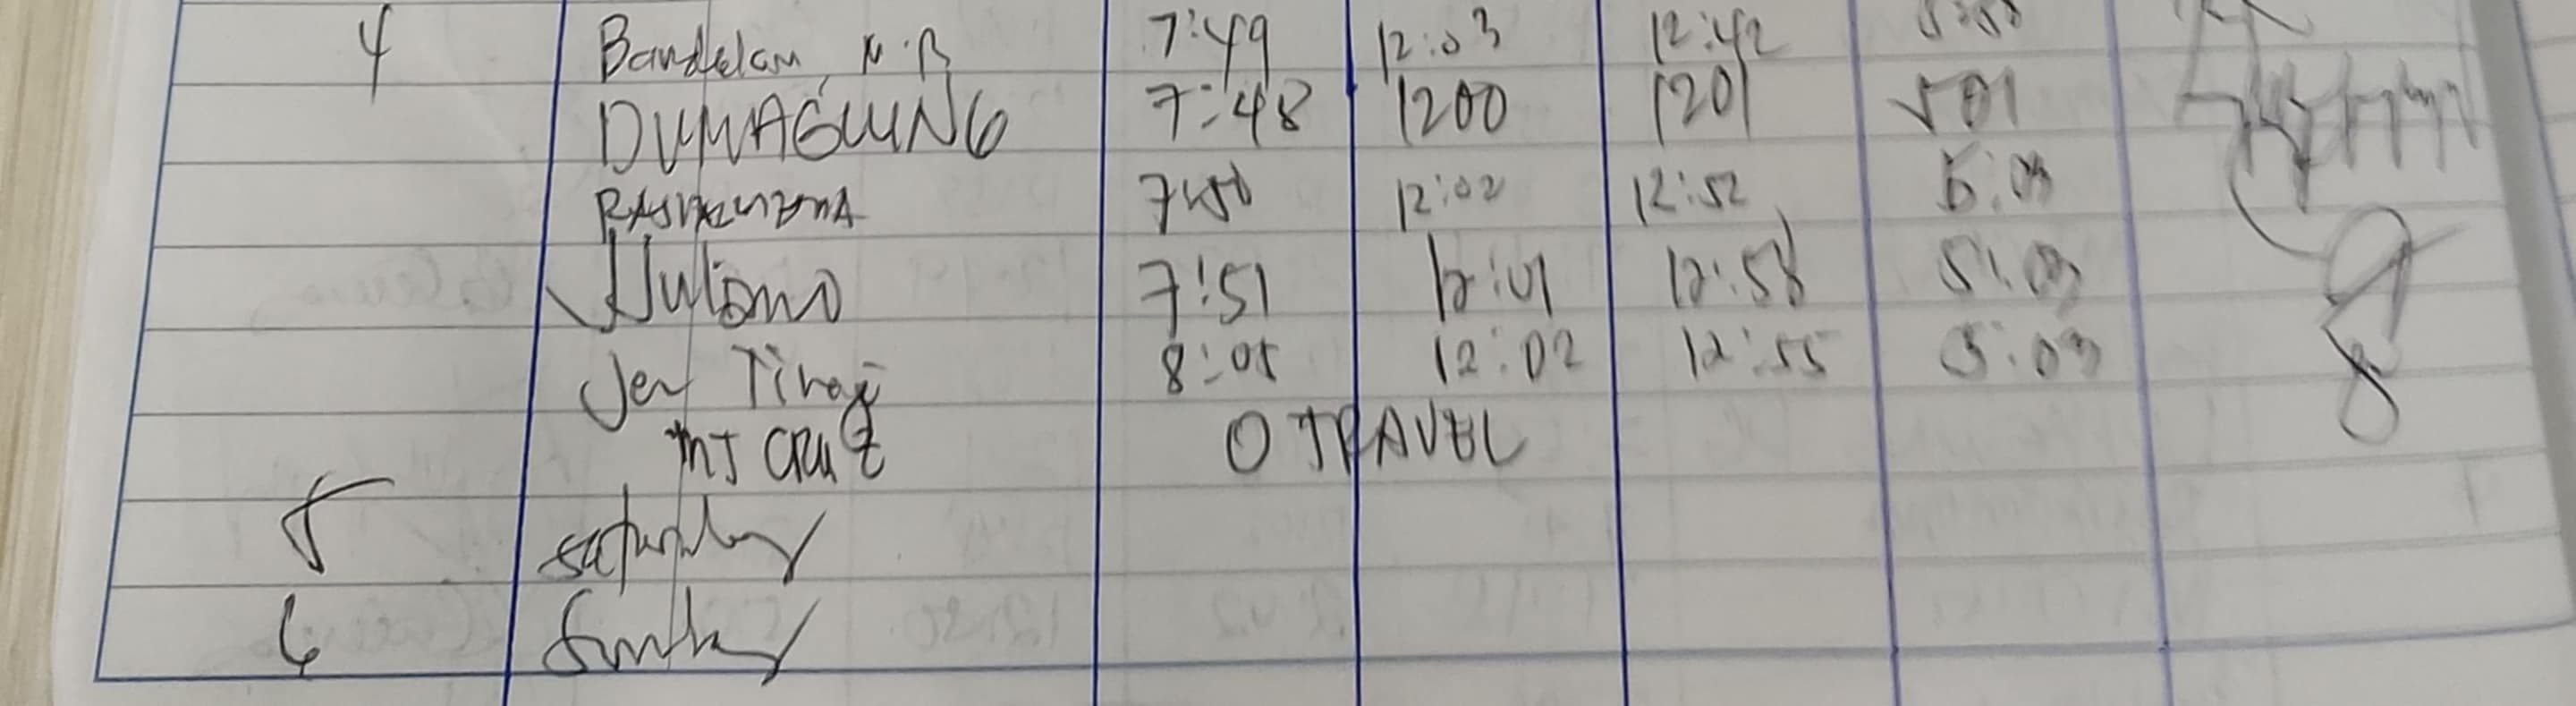 4 Bandelan, N.B 7:49 12:03 12:42
DUMAGUING 7:48 1200 1201 501
12:02 12:52 5:03
7:51 12:01 12:58 5:03
Jen 8:05 12:02 12:55 5:03
MJ CRUZ O TRAVEL
5 saturday
6 Sunday